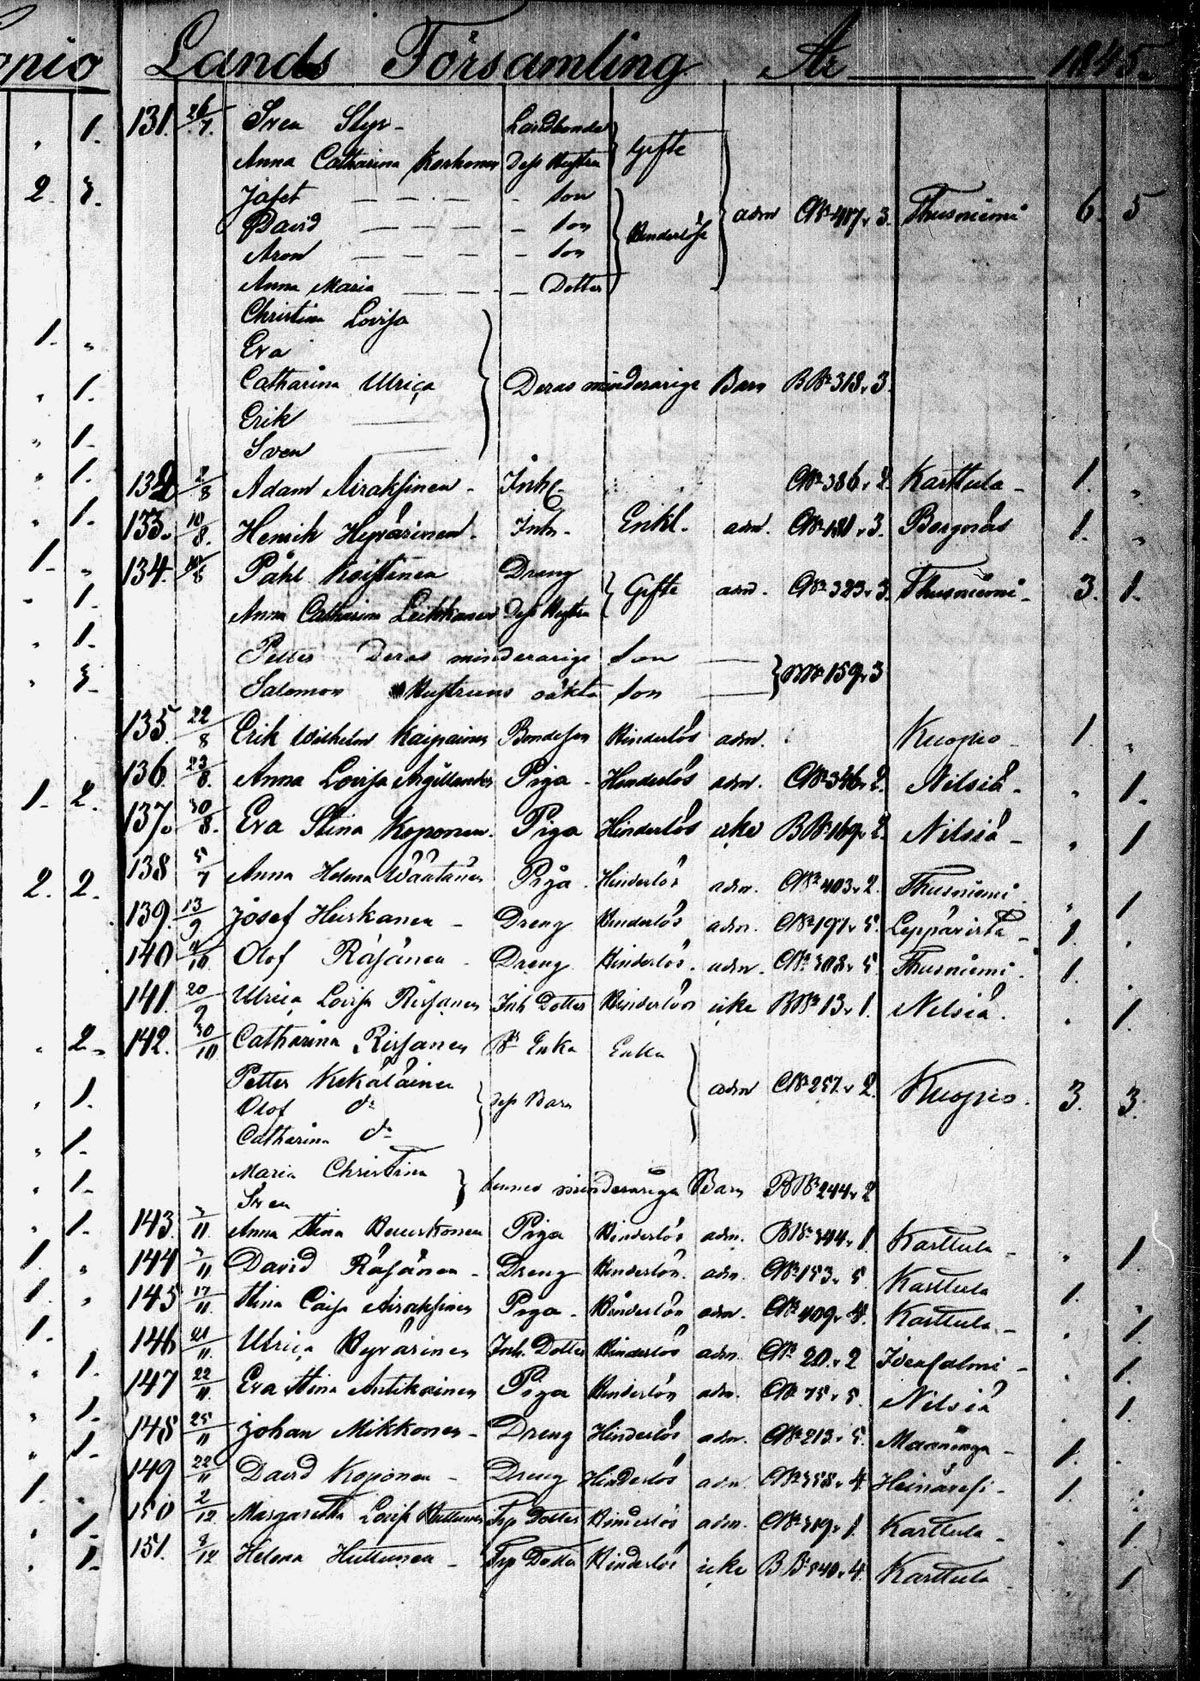 opio Lands Församling År 1845.
131. 26/7. Sven Slyr- Landbonde
Anna Catharina Korhonen Dess Hustru Gifte
Jafet — — — - Son
David — — — - Son Hinderlöse adm No 417. 3. Thusniemi 6. 5
Aron — — — - Son
Anna Maria — — — Dotter
Christina Lovisa
Eva
Catharina Ulrica Deras minderarige Barn B No 318. 3.
Erik
Sven
132 2/8 Adam Airaksinen - Inh. No 386. 2. Karttula - 1. „
133. 10/8. Henrik Hyvärinen. Inh. Enkl. adm. No 181. 3. Bergnäs 1. „
134. Påhl Koistinen Dreng Gifte adm. No 323. 3. Thusniemi. 3. 1.
Anna Catharina Leikkanen Dess Hustru
Petter Deras minderarige Son —
Salomon Hustruns oäkta Son — No 159. 3
135. 22/8 Erik Wilhelm Kaipainen Bondeson Hinderlös adm. Kuopio 1. „
136 23/8. Anna Lovisa Argillander Piga - Hinderlös adm. No 346. 2. Nilsiä - „ 1.
137. 30/8. Eva Stina Koponen. Piga Hinderlös icke B No 169. 2. Nilsiä - „ 1
138 5/7 Anna Helena Wäätänen Piga - Hinderlös adm. No 403. 2. Thusniemi. „ 1
139. 13/9 Josef Heiskanen - Dreng Hinderlös adm. No 197. 5. Leppävirta - 1. .
140 /10 Olof Räsänen - Dreng Hinderlös. adm. No 303. 5 Thusniemi. 1. .
141. 20/9 Ulrica Lovisa Rissanen Inh. Dotter Hinderlös icke B No 13. 1. Nilsiä. „ 1.
142. 30/10 Catharina Rissanen Enka Enka
Petter Kekäläinen adm No 257. 2. Kuopio. 3. 3.
Olof do Dess Barn
Catharina do
Maria Christina
Sven hennes minderåriga Barn B No 244. 2
143. /11. Anna Stina Piga Hinderlös adm. B No 344. 1. Karttula - „ 1.
144 /11 David Räsänen - Dreng Hinderlös. adm. No 153. 5 Karttula 1.
145 17/11. Stina Caisa Airaksinen Piga - Hinderlös adm. No 409. 4. Karttula - „ 1.
146 21/11. Ulrica Hyvärinen Inh. Dotter Hinderlös adm. No 20. 2 Idensalmi - „ 1.
147 22/11. Eva Stina Antikainen Piga Hinderlös adm. No 75. 5. Nilsiä „ 1.
148 25/11 Johan Mikkonen - Dreng Hinderlös adm. No 213. 5. Maaninga - 1. .
149 22/11 David Koponen - Dreng Hinderlös adm. No 358. 4. Heinävesi. 1. .
150 2/12. Margaretha Lovisa Huttunen Torp Dotter Hinderlös adm. No 319. 1. Karttula - „ 1
151. /12 Helena Huttunen - Torp Dotter Hinderlös icke B No 340. 4. Karttula - „ 1